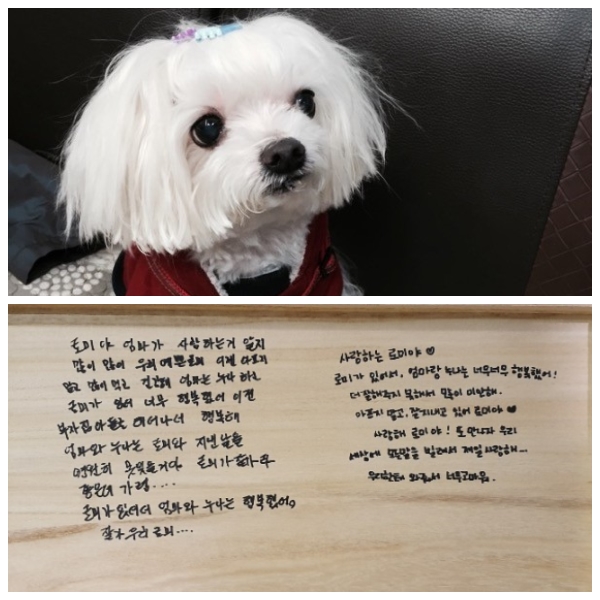 로미야 엄마가 사랑하는거 알지
많이 많이 우리 예쁜로미 이젠 아프지
말고 많이 먹고 건강해 엄마는 누나 하고
로미가 있어 너무 행복했어 이젠
부자집 아들로 태어나서 행복해
엄마와 누나는 로미와 지낸 날들
영원히 못잊을거야 로미가
좋은데 가렴....
로미가 있어서 엄마와 누나는 행복했어。
잘가 우리 로미....
사랑하는 로미야 ♡
로미가 있어서, 엄마랑 누나는 너무너무 행복했어!
더 잘해주지 못해서 미안해.
아프지 말고, 잘지내고 있어 로미야 ♥
사랑해 로미야! 또 만나자 우리
세상에 모든말을 빌려서 제일 사랑해...
우리한테 와줘서 너무고마워.